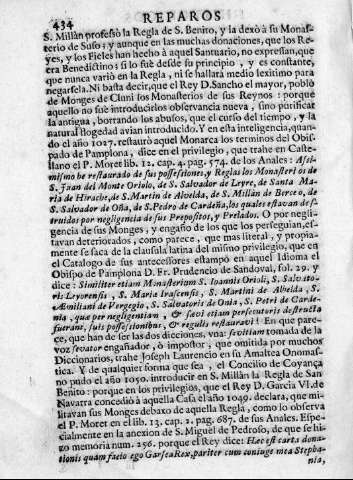 434
REPAROS
S. Millàn professò la Regla de S. Benito, y la dexò à su Monas-
terio de Suso; y aunque en las muchas donaciones, que los Re-
yes, y los Fieles han hecho à aquel Santuario, no expressan, que
era Benedictino; si lo fuè desde su principio, y es constante,
que nunca variò en la Regla, ni se hallarà medio legitimo para
negarsela. Ni basta decir, que el Rey D. Sancho el mayor, poblò
de Monges de Cluni los Monasterios de sus Reynos: porque
aquello no fuè introducirlos observancia nueva, sino purificar
la antigua, borrando los abusos, que el curso del tiempo, y la
natural flogedad avian introducido. Y en esta inteligencia, quan-
do el año 1027. restaurò aquel Monarca los terminos del Obispa-
do de Pamplona, dice en el privilegio, que trahe en Caste-
llano el P. Moret lib. 12. cap. 4. pag. 574. de los Anales: Assi-
mismo he restaurado de sus possessiones, y Reglas los Monasterios de
S. Juan del Monte Oriolo, de S. Salvador de Leyre, de Santa Ma-
ria de Hirache, de S. Martin de Alvelda, de S. Millàn de Berceo, de
S. Salvador de Oña, de S. Pedro de Cardeña, los quales estavan des-
truidos por negligencia de sus Prepositos, y Prelados. O por negli-
gencia de sus Monges, y engaño de los que los perseguian, es-
tavan deteriorados, como parece, que mas literal, y propia-
mente se saca de la clausula latina del mismo privilegio, que en
el Catalogo de sus antecessores estampò en aquel Idioma el
Obispo de Pamplona D. Fr. Prudencio de Sandoval, fol. 29. y
dice: Similiter etiam Monasterium S. Ioannis Orioli, S. Salvato-
ris Leyorensis, S. Maria Irascensis, S. Martini de Albelda, S.
Æmiliani de Vergegio, S. Salvatoris de Onia, S. Petri de Carde-
nia, que per negligentiam, & sævi etiam persecutoris destructa
fuerant, suis possessionibus, & regulis restauravi! En que pare-
ce, que han de ser las dos dicciones, voa: sevitiam tomada de la
voz sevator engañador, ò impostor, que omitida por muchos
Diccionarios, trahe Joseph Laurencio en su Amaltea Onomas-
tica. Y de qualquier forma que sea, el Concilio de Coyança
no pudo el año 1050. introducir en S. Millàn la Regla de San
Benito: porque en los privilegios, que el Rey D. Garcia VI. de
Navarra concediò à aquella Casa el año 1049. declara, que mi-
litavan sus Monges debaxo de aquella Regla, como lo observa
el P. Moret en el lib. 13. cap. 2. pag. 687. de sus Anales. Espe-
cialmente en la anexion de S. Miguel de Pedroso, de que se hi-
zo memoria num. 256. porque el Rey dice: Hæc est carta dona-
tionis quam facio ego Garsea Rex, pariter cum coniuge mea Stepha-
nia,